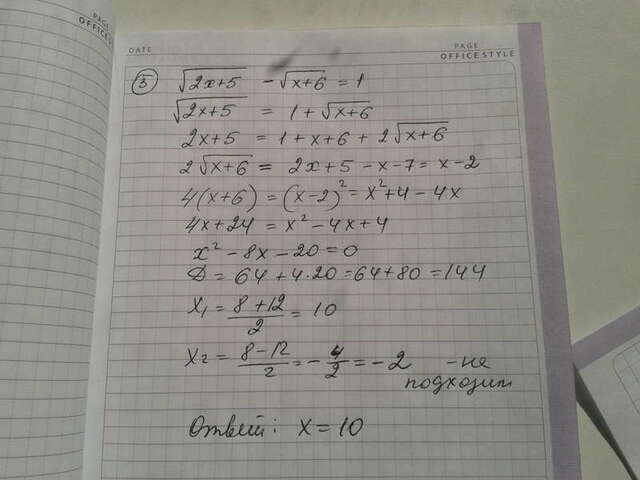 PAGE
OFFICE STYLE
DATE
PAGE
OFFICE STYLE
③ √2x+5 - √x+6 = 1
√2x+5 = 1 + √x+6
2x+5 = 1+x+6 + 2√x+6
2√x+6 = 2x+5 -x-7 = x-2
4(x+6) = (x-2)² = x²+4-4x
4x+24 = x²-4x+4
x²-8x-20=0
D = 64+4·20=64+80=144
x₁ = (8+12)/2 = 10
x₂ = (8-12)/2 = -4/2 = -2 -не
подходит
Ответ: x=10